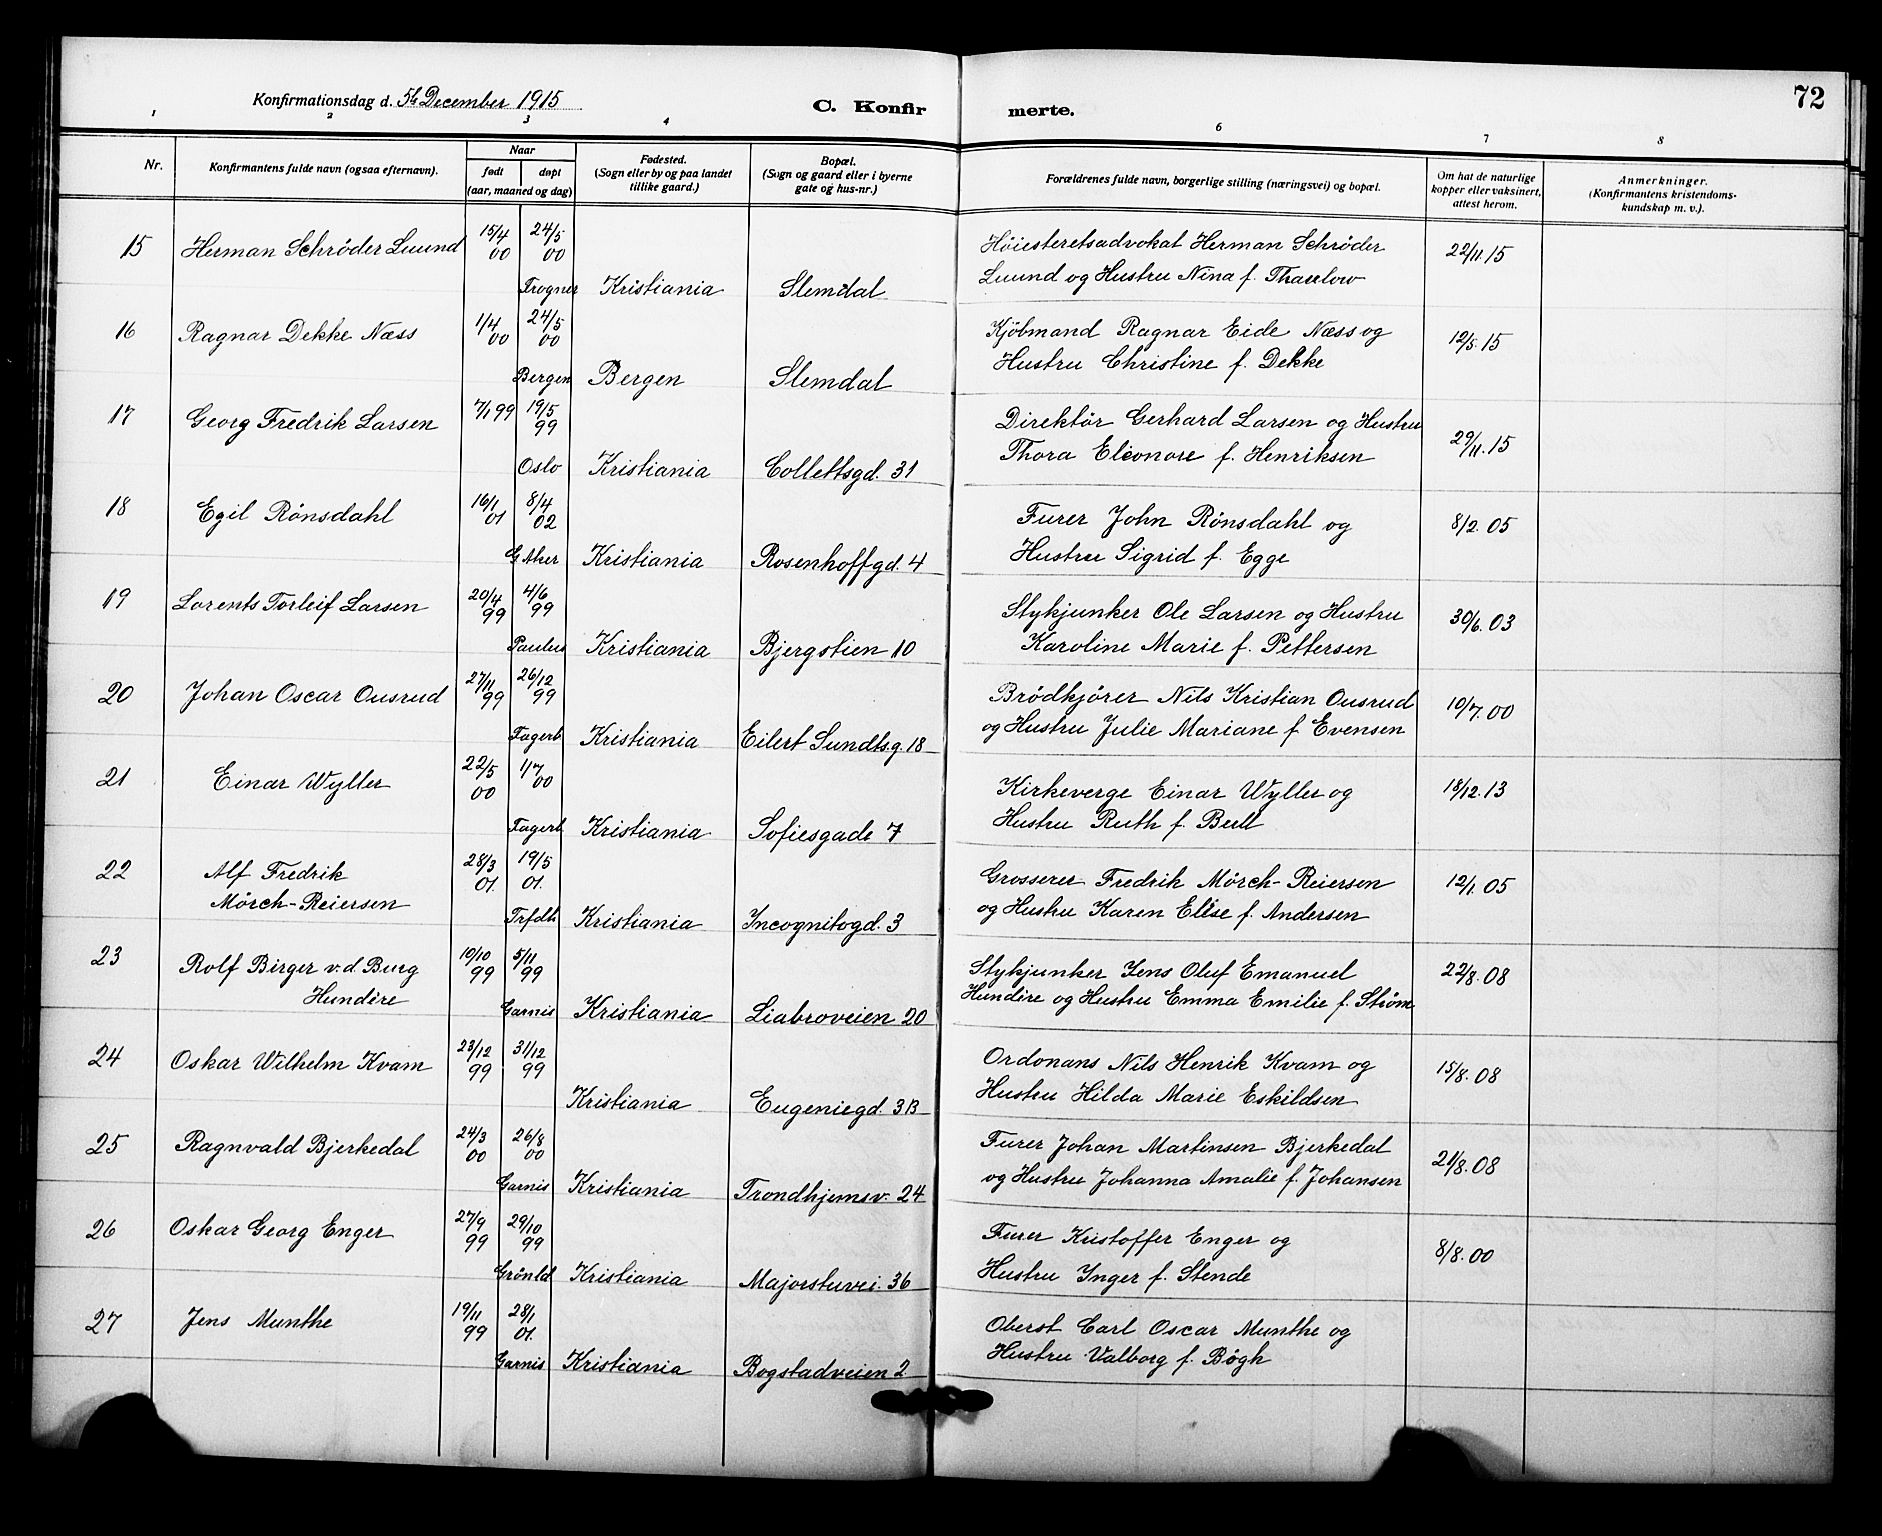 72
Konfirmationsdag d. 5te December 1915
C. Konfirmerte.
1 2 3 4 6 7 8
Nr.
Konfirmantens fulde navn (ogsaa efternavn).
Naar
født døpt
(aar, maaned og dag)
Fødested.
(Sogn eller by og paa landet
tillike gaard.)
Bopæl.
(Sogn og gaard eller i byerne
gate og hus-nr.)
Forældrenes fulde navn, borgerlige stilling (næringsvei) og bopæl.
Om hat de naturlige
kopper eller vaksinert,
attest herom.
Anmerkninger.
(Konfirmantens kristendoms-
kundskap m. v.).
15 Herman Schrøder Luund 15/4 00 24/5 00 Høiesteretsadvokat Herman Schrøder 22/11.15
Frogner Kristiania Slemdal Luund og Hustru Nina f. Thaulow
16 Ragnar Dekke Næss 1/4 00 24/5 00 Kjøbmand Ragnar Eide Næss og 12/5.15
Bergen Bergen Slemdal Hustru Christine f. Dekke
17 Georg Fredrik Larsen 7/1 99 19/5 99 Direktør Gerhard Larsen og Hustru 29/11.15
Oslo Kristiania Collettsgd. 31 Thora Eleonore f. Henriksen
18 Egil Rønsdahl 16/1 01 8/4 02 Furer John Rønsdahl og 8/2.05
G Aker Kristiania Rosenhoffgd. 4 Hustru Sigrid f. Egge
19 Lorents Torleif Larsen 20/4 99 4/6 99 Stykjunker Ole Larsen og Hustru 30/6.03
Paulus Kristiania Bjergstien 10 Karoline Marie f. Pettersen
20 Johan Oscar Ousrud 27/11 99 26/12 99 Brødkjører Nils Kristian Ousrud 10/7.00
Fagerb Kristiania Eilert Sundtsg. 18 og Hustru Julie Mariane f Evensen
21 Einar Wyller 22/5 00 1/7 00 Kirkeverge Einar Wyller og 18/12.13
Fagerb Kristiania Sofiesgade 7 Hustru Ruth f. Bull
22 Alf Fredrik 28/3 01. 19/5 01. Grosserer Fredrik Mørch-Reiersen 12/1.05
Mørch-Reiersen
Trfdh Kristiania Incognitogd. 3 og Hustru Karen Elise f. Andersen
23 Rolf Birger v. d. Burg 10/10 99 5/11 99 Stykjunker Jens Oluf Emanuel 22/8.08
Hundère
Garnis Kristiania Liabroveien 20 Hundère og Hustru Emma Emilie f. Strøm
24 Oskar Wilhelm Kvam 23/12 99 31/12 99 Ordonans Nils Henrik Kvam og 15/8.08
Kristiania Eugeniegd. 3B Hustru Hilda Marie Eskildsen
25 Ragnvald Bjerkedal 24/3 00 26/8 00 Furer Johan Martinsen Bjerkedal 21/8.08
Garnis Kristiania Trondhjemsv. 24 og Hustru Johanna Amalie f. Johansen
26 Oskar Georg Enger 27/9 99 29/10 99 Furer Kristoffer Enger og 8/8.00
Grønld Kristiania Majorstuvei. 36 Hustru Inger f. Stende
27 Jens Munthe 19/11 99 28/1 01. Oberst Carl Oscar Munthe og
Garnis Kristiania Bogstadveien 2 Hustru Valborg f. Bøgh